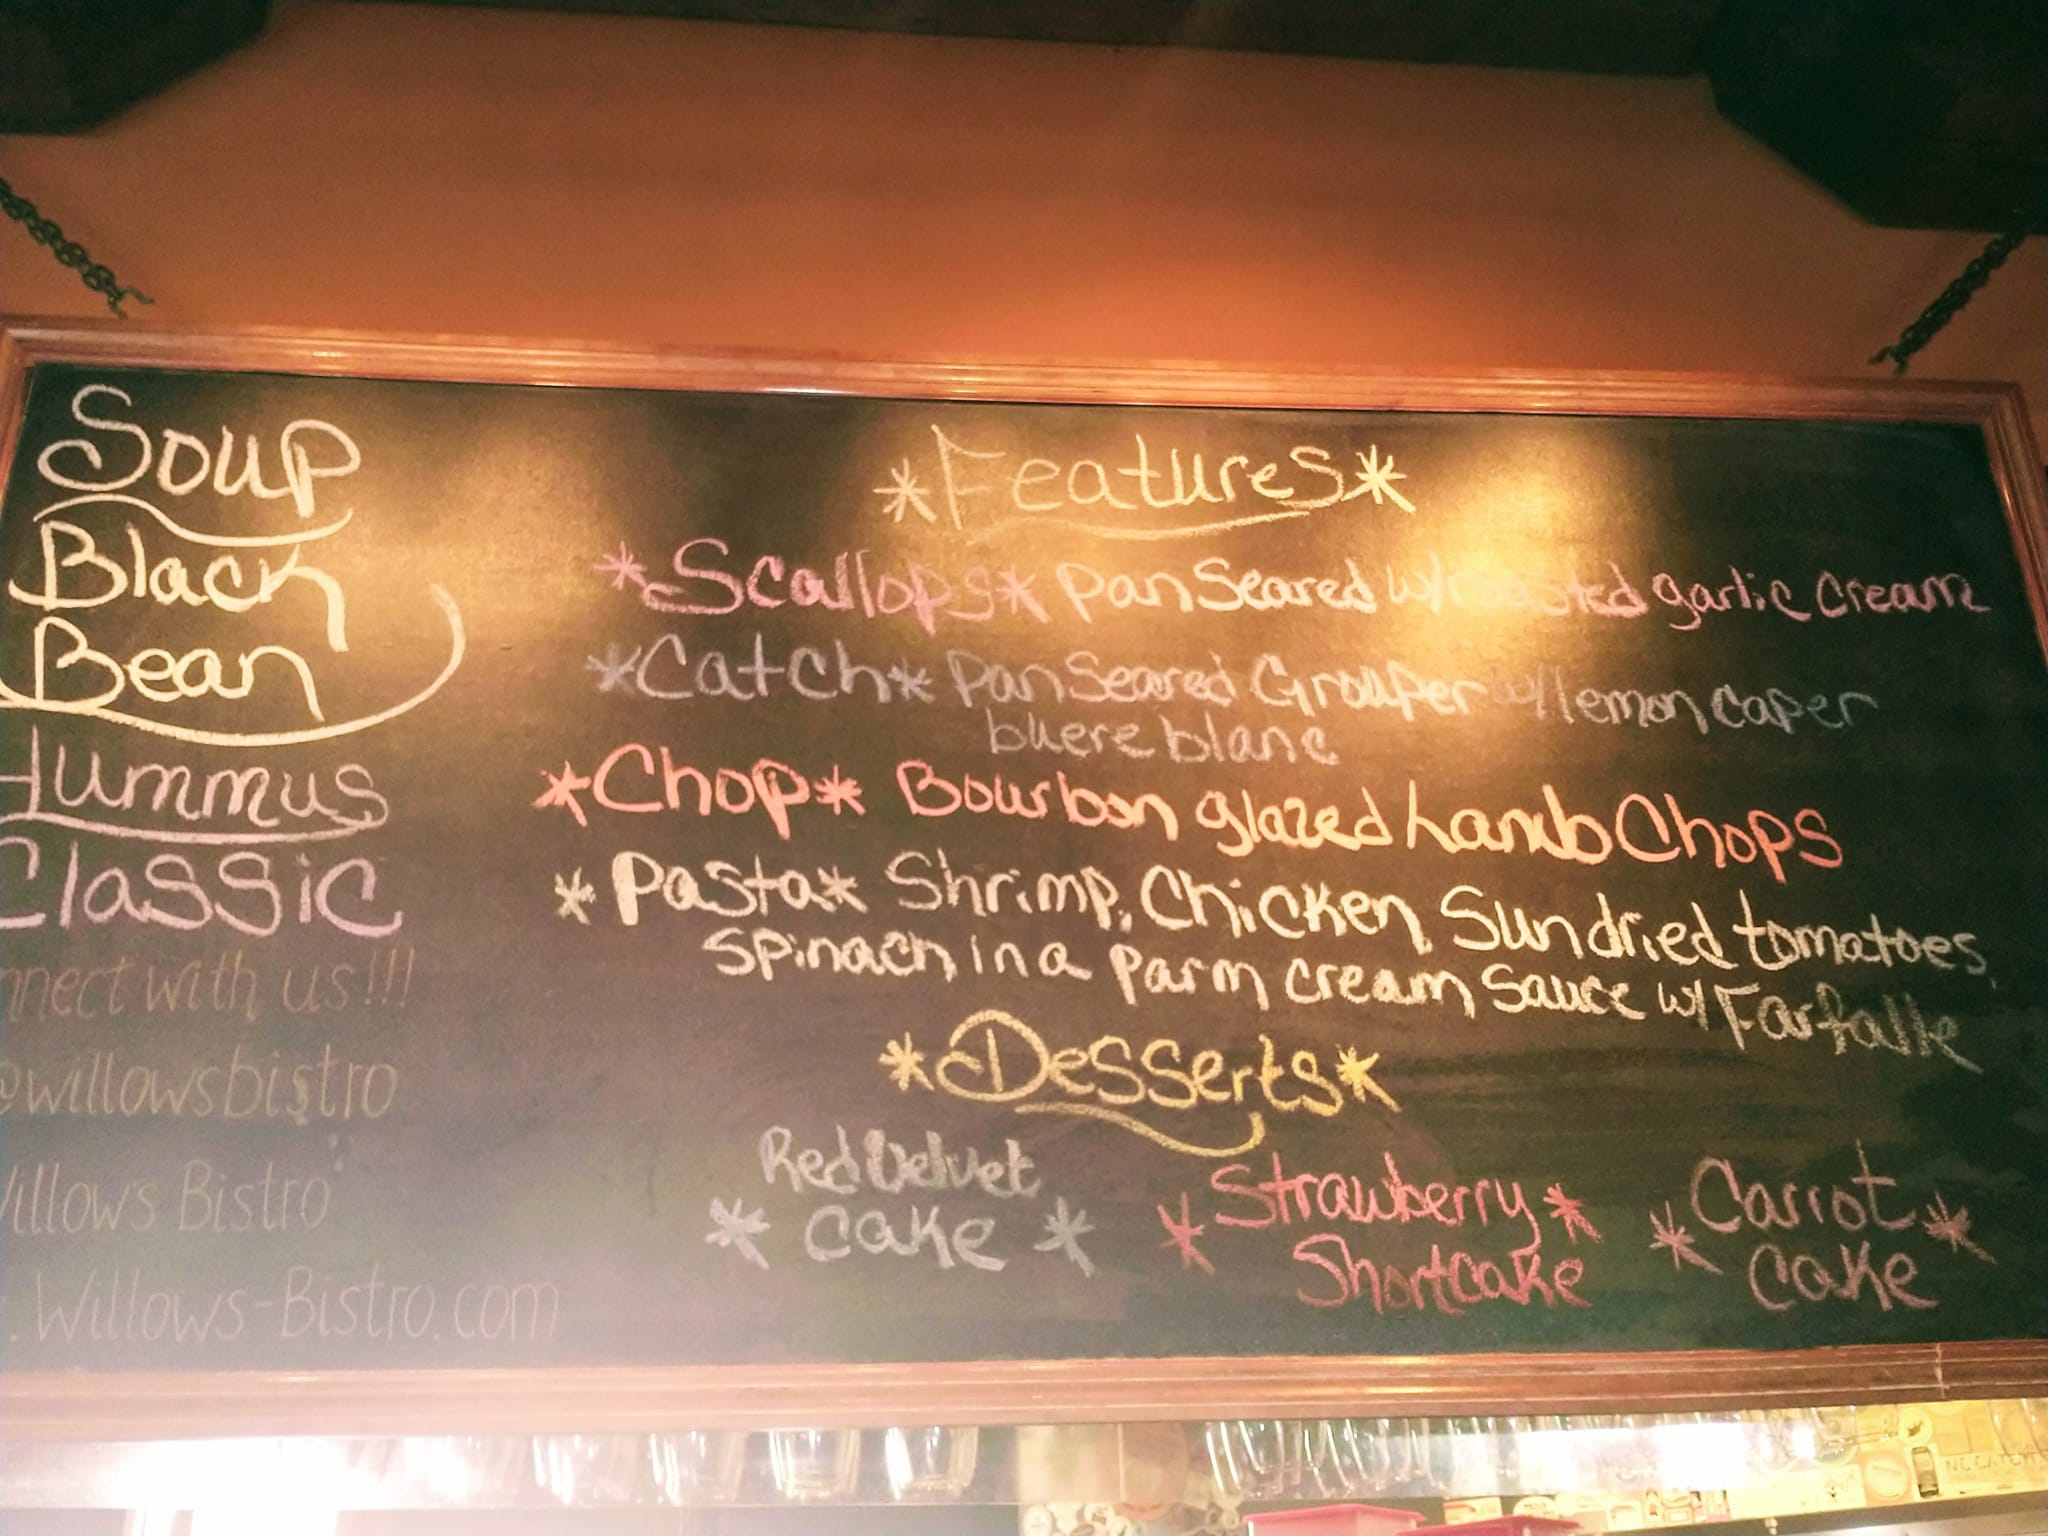 Soup
Black
Bean
Hummus
Classic
nnect with us!!!
@willowsbistro
Willows Bistro
.Willows-Bistro.com
*Features*
*Scallops* pan Seared w/roasted garlic cream
*Catch* pan Seared Grouper w/ lemon caper
buere blanc
*Chop* Bourbon glazed Lamb Chops
*Pasta* Shrimp, Chicken, Sundried tomatoes,
spinach in a parm cream sauce w/ Farfalle
*Desserts*
Red Velvet
*Cake*
*Strawberry*
Shortcake
*Carrot*
Cake